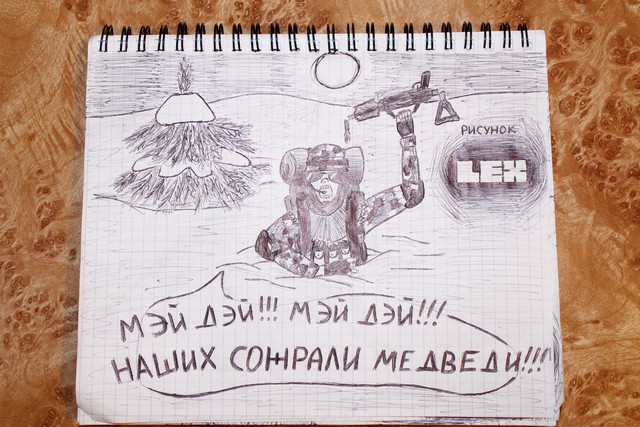 РИСУНОК
LEX
МЭЙ ДЭЙ!!! МЭЙ ДЭЙ!!!
НАШИХ СОЖРАЛИ МЕДВЕДИ!!!